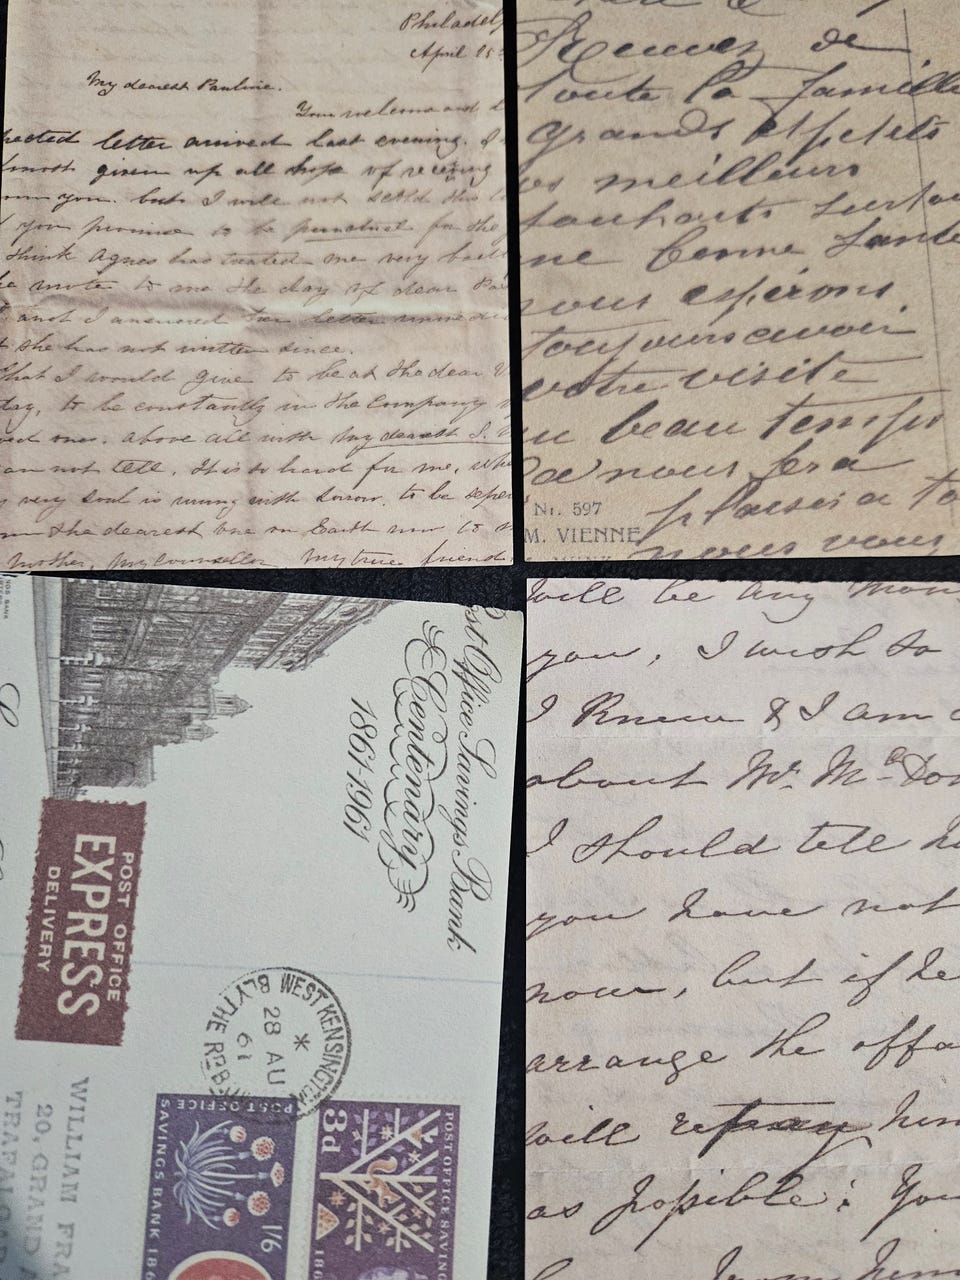 Philadel
April 25
My dearest Pauline.
Your welcome and
pected letter arrived last evening. I
lmost given up all hope of receiving
om you. but I will not scold this
you promise to be punctual for the
think Agnes has treated me very badly
he wrote to me the day of dear
and I answered her letter immedi
t she has not written since.
What I would give to be at the dear
day, to be constantly in the company
ved ones. above all with my dearest
an not tell. It is so hard for me, whe
y very soul is wrung with sorrow. to be sepe
om the dearest one on Earth now to
Mother, my Counsellor my true friend
Recevez de
toute la famille
grands et petits
os meilleurs
souhaits surtou
une bonne santé
nous espérons
toujours avoir
votre visite
au beau temps
nous fera
plaisir a to
nous vous
Nr. 597
M. VIENNE
Post Office Savings Bank
Centenary
1861-1961
POST OFFICE
EXPRESS
DELIVERY
WEST KENSINGTON
BLYTHE RD
*
28 AU
61
POST OFFICE
SAVINGS BANK 186
1/6
3d
POST OFFICE SAVING
186
WILLIAM FRA
20, GRAND
TRAFALGAR
will be any mon
you, I wish to
I Knew & I am
about Mr. Mc Don
I should tell h
you have not
now, but if he
arrange the affa
will repay him
as possible; You
him